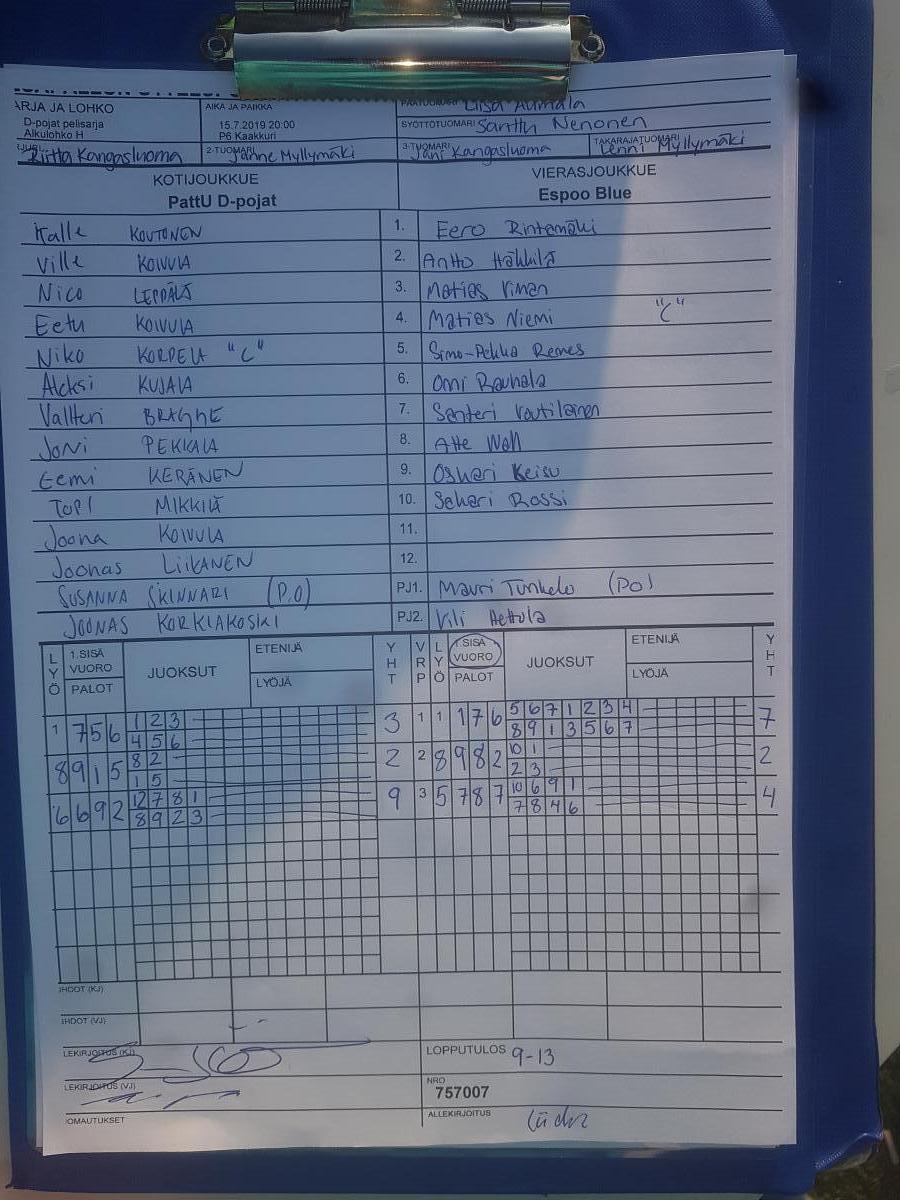 ARJA JA LOHKO
D-pojat pelisarja
Alkulohko H
AIKA JA PAIKKA
15.7.2019 20:00
P6 Kaakkuri
Liisa Aumala
SYÖTTÖTUOMARI Santtu Nenonen
Riitta Kangasluoma
2-TUOMARI Janne Myllymäki
3-TUOMARI Jani Kangasluoma
TAKARAJATUOMARI Lenni Myllymäki
KOTIJOUKKUE
PattU D-pojat
VIERASJOUKKUE
Espoo Blue
Kalle KOUTONEN 1. Eero Rintamäki
Ville KOIVULA 2. Antto Häkkilä
Nico LEPPÄLÄ 3. Matias Viman
Eetu KOIVULA 4. Matias Niemi "C"
Niko KORPELA "C" 5. Simo-Pekka Remes
Aleksi KUJALA 6. Omi Rauhala
Valtteri BRAGGE 7. Santeri Voutilainen
Joni PEKKALA 8. Atte Wall
Eemi KERÄNEN 9. Oskari Keisu
TOPI MIKKILÄ 10. Sakari Rossi
Joona KOIVULA 11.
Joonas LIIKANEN 12.
SUSANNA SKINNARI (P.O) PJ1. Mauri Tunkelo (PO)
JOONAS KORKIAKOSKI PJ2. Vili Aettola
LYÖ 1.SISÄ VUORO PALOT JUOKSUT ETENIJÄ LYÖJÄ YHT VRP LYÖ 1.SISÄ VUORO PALOT JUOKSUT ETENIJÄ LYÖJÄ YHT
1 2 3 5 6 7 1 2 3 4
1 7 5 6 3 1 1 1 7 6 7
4 5 6 8 9 1 3 5 6 7
8 2 10 1
8 9 1 5 2 2 8 9 8 2 2
1 5 2 3
12 7 8 1 10 6 9 1
6 6 9 2 9 3 5 7 8 7 4
8 9 2 3 7 8 4 6
IHDOT (KJ)
IHDOT (VJ)
LEKIRJOITUS (KJ)
LOPPUTULOS 9-13
LEKIRJOITUS (VJ)
NRO
757007
OMAUTUKSET
ALLEKIRJOITUS